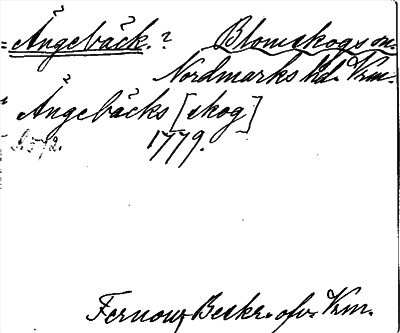 Ångebäck.? Blomskogs sn.
Nordmarks hd. Vrm.
Ångebäcks [skog]
1779.
Fernow, Beskr. ofv. Vrm.